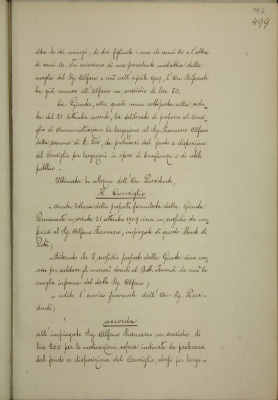 499
altro di 26 minogi, di due figliuole: una di anni 20 e l'altra
di anni 10. In occasione di una precedente malattia della
moglie del Sig. Alfano e cioè nell'aprile 1909, l'On. Presidente
ha già concesso all'Alfano un sussidio di lire 50.
La Giunta, alla quale venne sottoposta nella seduta
del 21 settembre scorso, ha deliberato di proporre al Consiglio
di Amministrazione la largizione al Sig. Francesco Alfano
della somma di L. 200, da prelevarsi dal fondo a disposizione
del Consiglio per largizioni in opere di beneficenza e di utile
pubblico.
Ultimata la relazione dell'On. Presidente,
Il Consiglio
Avuta lettura della proposta formulata dalla Giunta
Permanente in seduta 21 settembre 1909 circa un sussidio da concedersi
al Sig. Alfano Francesco, impiegato di questo Monte di
Pietà;
Attesoché il sussidio proposto dalla Giunta viene concesso
per saldare gli onorari dovuti al Dott. che curò la
moglie inferma del detto Sig. Alfano;
Udito l'avviso favorevole dell'On. Sig. Presidente;
accorda
all'impiegato Sig. Alfano Francesco un sussidio di
lire 200 per le motivazioni sopra indicate da prelevarsi
dal fondo a disposizione del Consiglio stesso per largi-